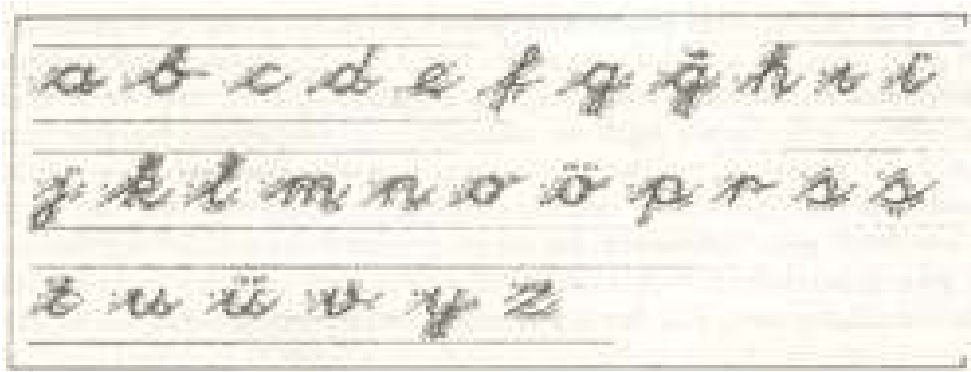 a b c d e f g ğ h ı i
j k l m n o ö p r s ş
t u ü v y z